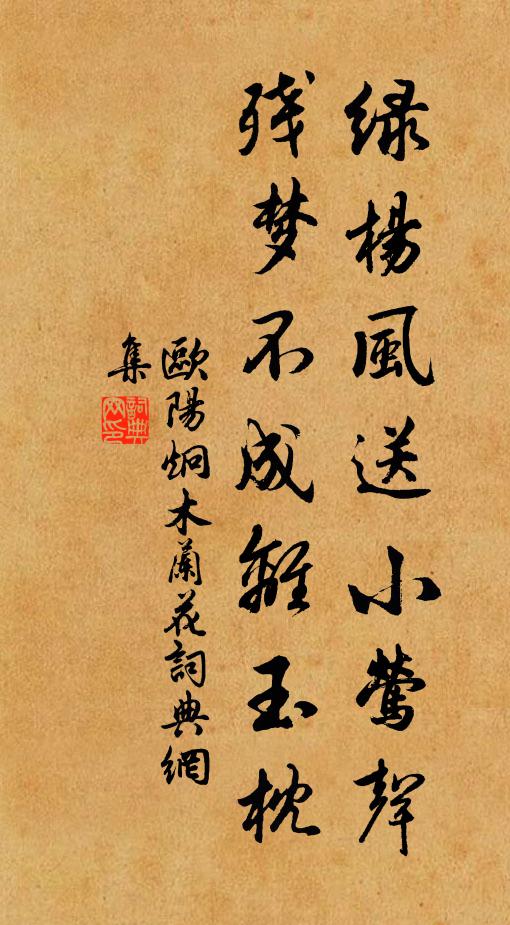 绿楊風送小鶯聲
残梦不成離玉枕
歐陽炯木蘭花詞典網
集
詞典網印